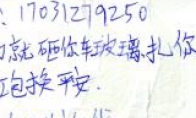 : 17031279250
就砸你车玻璃.扎你
包换平安.